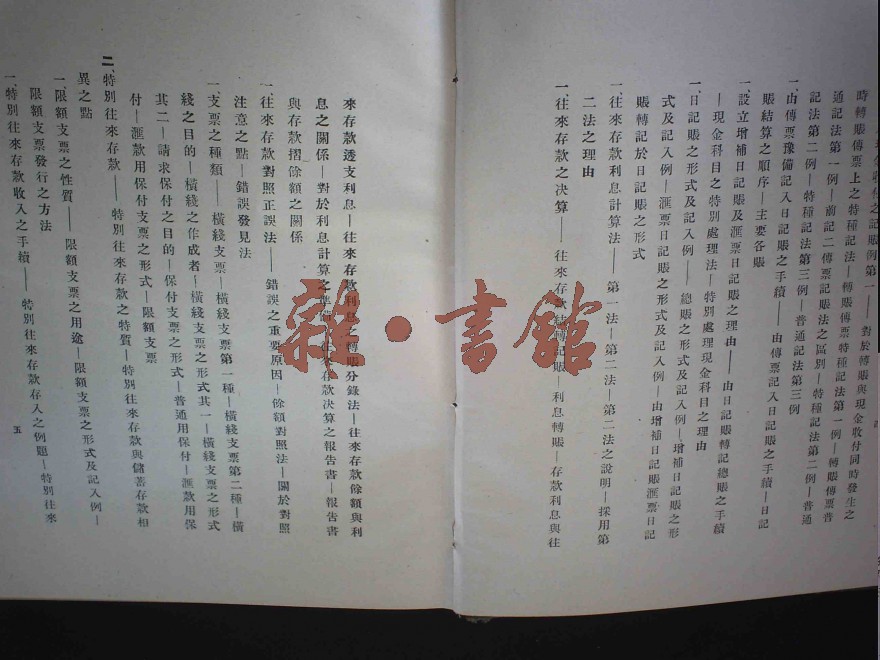 收付之記賬例第一——對於轉賬與現金收付同時發生之
時轉賬傳票上之特種記法—轉賬傳票特種記法第一例—轉賬傳票普
通記法第一例—前記二傳票記賬法之區別—特種記法第二例—普通
記法第二例—特種記法第三例—普通記法第三例
一、由傳票豫備記入日記賬之手續——由傳票記入日記賬之手續—日記
賬結算之順序—主要各賬
一、設立增補日記賬及滙票日記賬之理由——由日記賬轉記總賬之手續
—現金科目之特別處理法—特別處理現金科目之理由
一、日記賬之形式及記入例——總賬之形式及記入例—增補日記賬之形
式及記入例—滙票日記賬之形式及記入例—由增補日記賬滙票日記
賬轉記於日記賬之形式
一、往來存款利息計算法——第一法—第二法—第二法之說明—採用第
二法之理由
一、往來存款之决算——往來存款結轉記賬—利息轉賬—存款利息與往
來存款透支利息—往來存款利息之轉賬分錄法—往來存款餘額與利
息之關係—對於利息計算之準備—往來存款決算之報告書—報告書
與存款摺餘額之關係
一、往來存款對照正誤法——錯誤之重要原因—餘額對照法—關於對照
注意之點—錯誤發見法
一、支票之種類——橫綫支票—橫綫支票第一種—橫綫支票第二種—橫
綫之目的—橫綫之作成者—橫綫支票之形式其一—橫綫支票之形式
其二—請求保付之目的—保付支票之形式—普通用保付—滙款用保
付—滙款用保付支票之形式—限額支票
二、特別往來存款——特別往來存款之特質—特別往來存款與儲蓄存款相
異之點
一、限額支票之性質——限額支票之用途—限額支票之形式及記入例—
限額支票發行之方法
一、特別往來存款收入之手續——特別往來存款存入之例題—特別往來
五
雜·書館